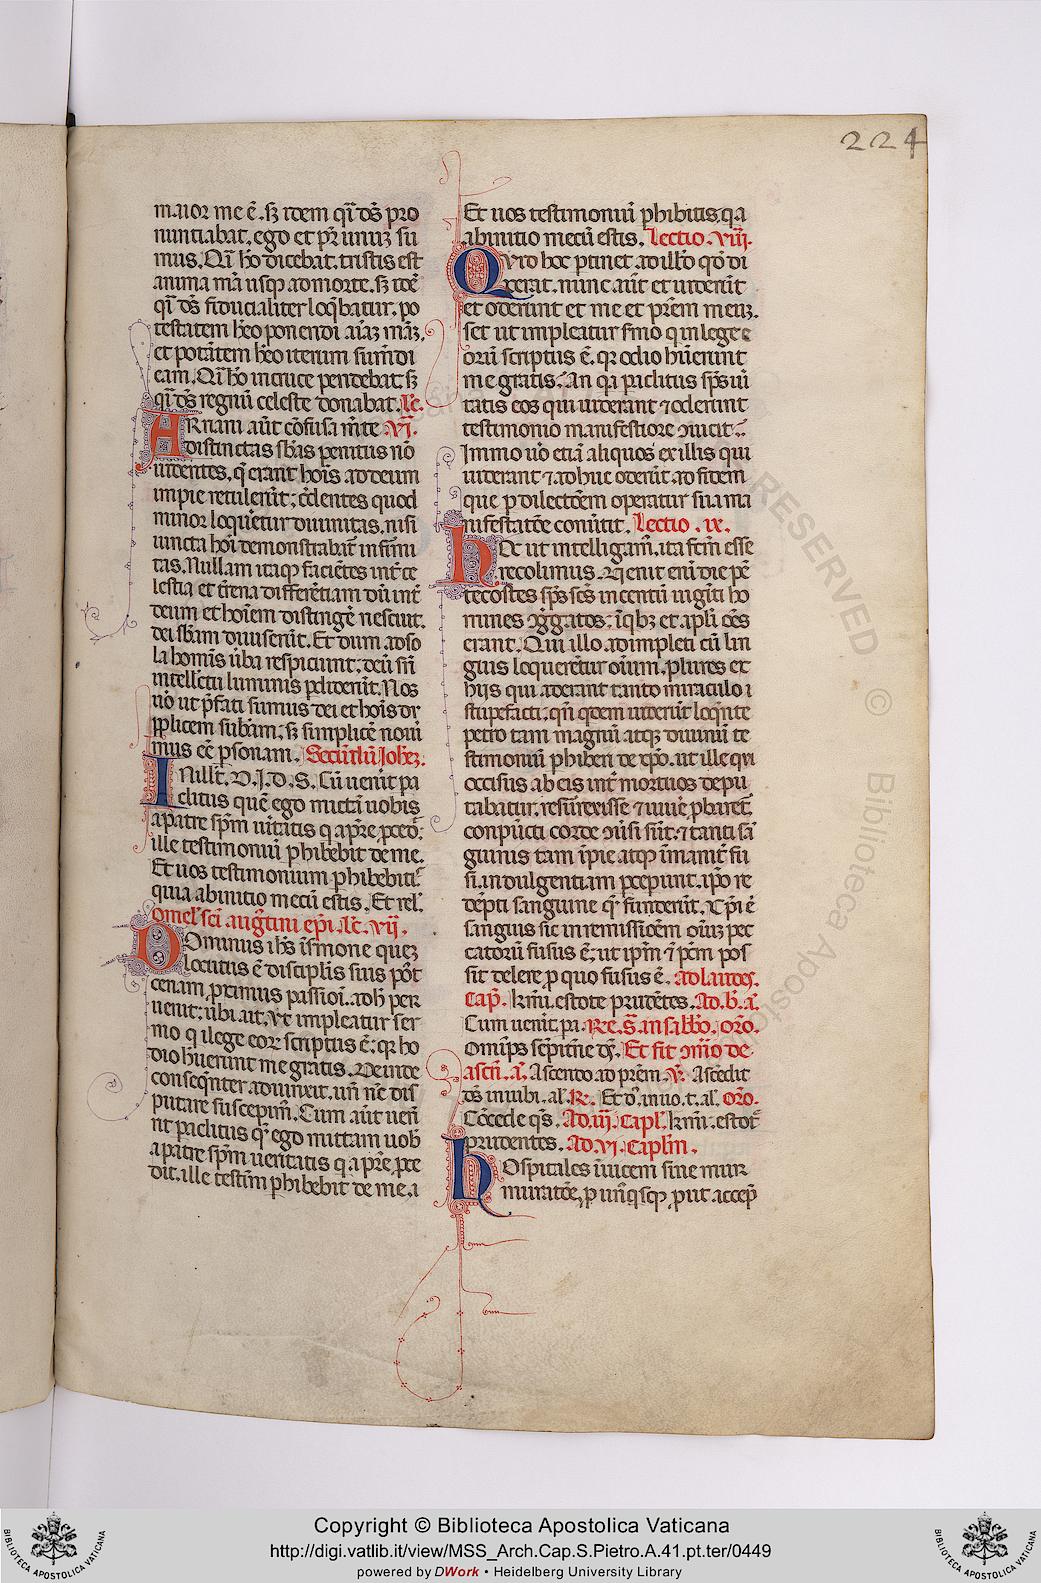 224
maior me ē. sꝫ idem qͥ dš pro
nuntiabat. ego et pr̄ unuꝫ su
mus. Qui ho dicebat. tristis est
anima mā usqꝫ ad morte. sꝫ idē
qͥ dš fiducialiter loqͣbatur. po
testatem hēo ponendi aīaꝫ māꝫ.
et potātem hēo iterum sumēdi
eam. Qui ho in cruce pendebat sꝫ
qͥ dš regnū celeste donabat. Lc̄.
ARriani aūt cōfusa mīte VI.
distinctas sbās penitus nō
uidentes, q̄ erant hoīs ad deum
impie retulerūt; cōlentes quod
minor loqueretur diuinitas, nisi
iuncta hoī demonstrabāt infirmi
tas. Nullam itaqꝫ faciētes int̄ ce
lestia et t̄rena differētiam dū int̄
deum et hoīem distinguē nesciūt.
dei sbām diuiserūt. Et dum ad so
la hominis ūba respiciunt; deū sin̄
intellectu luminis pdiderūt. Nos
ūo ut p̄fati sumus dei et hoīs du
plicem subām; sꝫ simplicē noui
mus eē psonam. Secundū Joheꝫ.
IN illo t̄. D. J. D. S. Cū uenit pa
clitus quē ego mittā uobis
a patre spm̄ ūitatis q a pr̄e pcedit;
ille testimoniū phibebit de me.
Et uos testimonium phibebitis
quia ab initio mecū estis. Et rel̄.
omel̄ scī augustini epī. Lc̄. VII.
DOminus ihs̄ in s̄mone queꝫ
locutus ē discipulis suis post
cenam, proximus passioni. adh̄ per
uenit; ubi ait. Vt impleatur ser
mo q i lege eoꝝ scriptus ē; qꝛ ho
dio h̄uerunt me gratis. Deinde
conseqͣnter adiunxit. uñ nc̄ dis
putare suscepimꝰ. Cum aūt ueñ
nt paclitus qͣ ego mittam uob
a patre spm̄ ueritatis q a pr̄e, pce
dit. ille testīm phibebit de me. ⁊
Et uos testimoniū phibitis, q a
ab initio mecū estis. Lectio. VIII.
QUid hoc ptinet ad illud qd̄ di
xerat. nunc aūt et uiderūt
et oderunt et me et prēm meuꝫ.
set ut impleatur s̄mo q in lege e
orū scriptus ē. qꝛ odio h̄uerunt
me gratis. An qͥ paclitus sps̄ ūi
tatis eos qui uiderant ⁊ oderunt
testimonio manifestiore ꝯuicit.
Immo ūo etiā aliquos ex illis qui
uiderant ⁊ adhuc oderūt. ad fidem
que p dilectōem operatur sua ma
nifestatōe conūtit. Lectio. ix.
hOc ut intelligamꝰ. ita fcm̄ esse
recolimus. Venit enī die pē
tecostes sps̄ scs̄ in centū uigīti ho
mines ꝯgregatos; in qbꝫ et apl̄i oēs
erant. Qui illo adimpleti cū lin
guis loquerētur oīum, plures et
hijs qui aderant tanto miraculo ⁊
stupefacti. qn̄ qdem uiderūt loqͣnte
petro tam magnū atqꝫ diuinū te
stimoniū phiberi de xpo. ut ille qui
occisus ab eis int̄ mortuos depu
tabatur, resūrexisse ⁊ uiuē pbaret̄.
conpūcti corde ꝯuersi sūt. ⁊ tanti sā
guinis tam īpie atqꝫ īmanit̄ fu
si. indulgentiam pcepunt. ipo re
dēpti sanguine qͣ fuderūt. Xpi ē
sanguis sic in remissiōem oīuꝫ pec
catorū fusus ē; ut ipm̄ ⁊ pcm̄ pos
sit delere p quo fusus ē. Ad laudes.
Cap̄. kmī. estote prudētes. Ad. B. a.
Cum uenit pa. Re. S. in sabbo. oro.
Omnips sēpitne ds̄. Et fit ꝯmio de
ascn̄. a. Ascendo ad prēm. V. Ascēdit
ds̄ in iubi. al̄. R. Et dš. in uo. t. al̄. oro.
Cōcede qs̄. Ad. iij. Capl̄. kmī. estote
prudentes. Ad. VI. Caplm̄.
hOspitales īuicem sine mur
muratōe, p ut unꝰqsqꝫ, put accep
BIBLIOTECA APOSTOLICA VATICANA
Copyright © Biblioteca Apostolica Vaticana
http://digi.vatlib.it/view/MSS_Arch.Cap.S.Pietro.A.41.pt.ter/0449
powered by DWork • Heidelberg University Library
BIBLIOTECA APOSTOLICA VATICANA